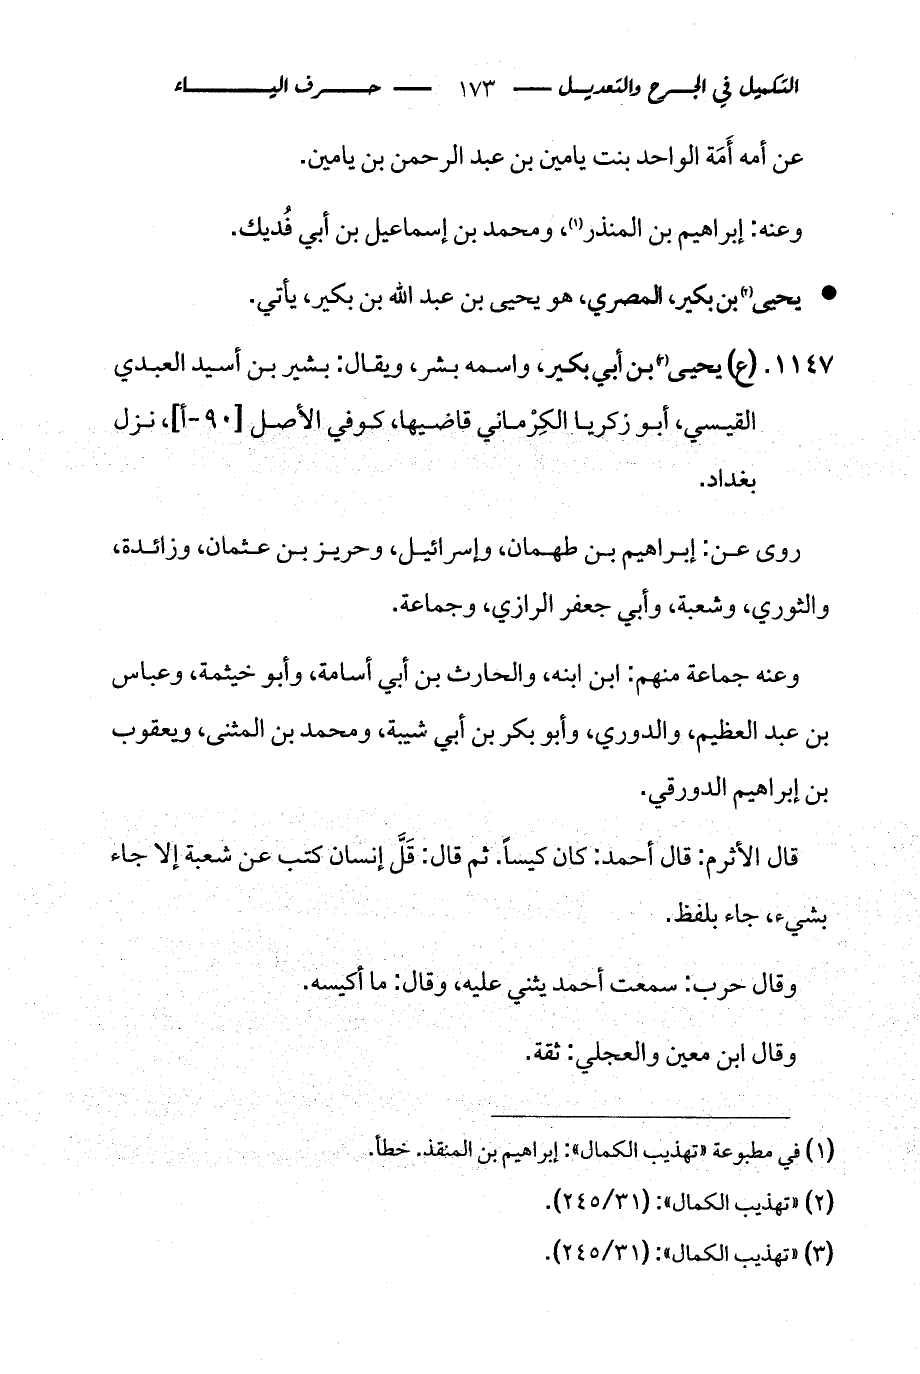 التكميل في الجرح والتعديل — ١٧٣ — حرف الياء
عن أمه أَمَة الواحد بنت يامين بن عبد الرحمن بن يامين.
وعنه: إبراهيم بن المنذر(١)، ومحمد بن إسماعيل بن أبي فُديك.
● يحيى(٢) بن بكير، المصري، هو يحيى بن عبد الله بن بكير، يأتي.
١١٤٧. (ع) يحيى(٣) بن أبي بكير، واسمه بشر، ويقال: بشير بن أسيد العبدي
القيسي، أبو زكريا الكِرْماني قاضيها، كوفي الأصل [٩٠-أ]، نزل
بغداد.
روى عن: إبراهيم بن طهمان، وإسرائيل، وحريز بن عثمان، وزائدة،
والثوري، وشعبة، وأبي جعفر الرازي، وجماعة.
وعنه جماعة منهم: ابن ابنه، والحارث بن أبي أسامة، وأبو خيثمة، وعباس
بن عبد العظيم، والدوري، وأبو بكر بن أبي شيبة، ومحمد بن المثنى، ويعقوب
بن إبراهيم الدورقي.
قال الأثرم: قال أحمد: كان كيساً. ثم قال: قَلَّ إنسان كتب عن شعبة إلا جاء
بشيء، جاء بلفظ.
وقال حرب: سمعت أحمد يثني عليه، وقال: ما أكيسه.
وقال ابن معين والعجلي: ثقة.
(١) في مطبوعة «تهذيب الكمال»: إبراهيم بن المنقذ. خطأ.
(٢) «تهذيب الكمال»: (٢٤٥/٣١).
(٣) «تهذيب الكمال»: (٢٤٥/٣١).